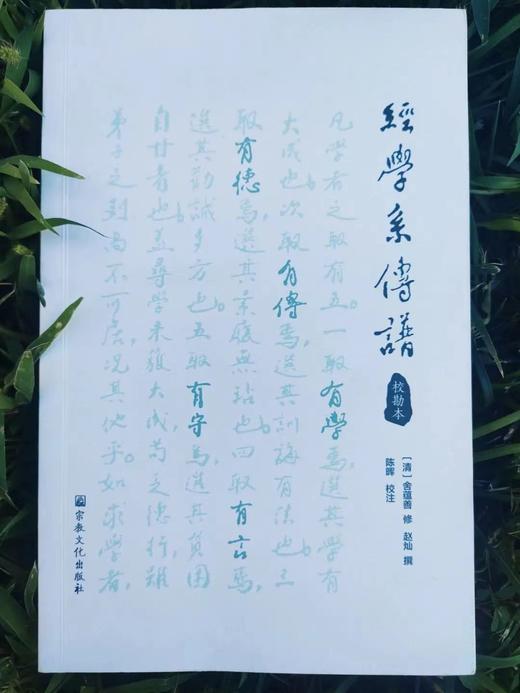 經學系傳譜
校勘本
〔清〕舍蕴善 修 赵灿 撰
陈晖 校注
凡學者之取有五。一取有學焉，選其學有
大成也。次取有傳焉，選其訓誨有法也。三
取有德焉，選其素履無玷也。四取有言焉，
選其勤誠多方也。五取有守焉，選其貧困
自甘者也。盖尋學未獲大成，苟乏德行，雖
弟子之列尚不可居，况其他乎。如求學者，
宗教文化出版社